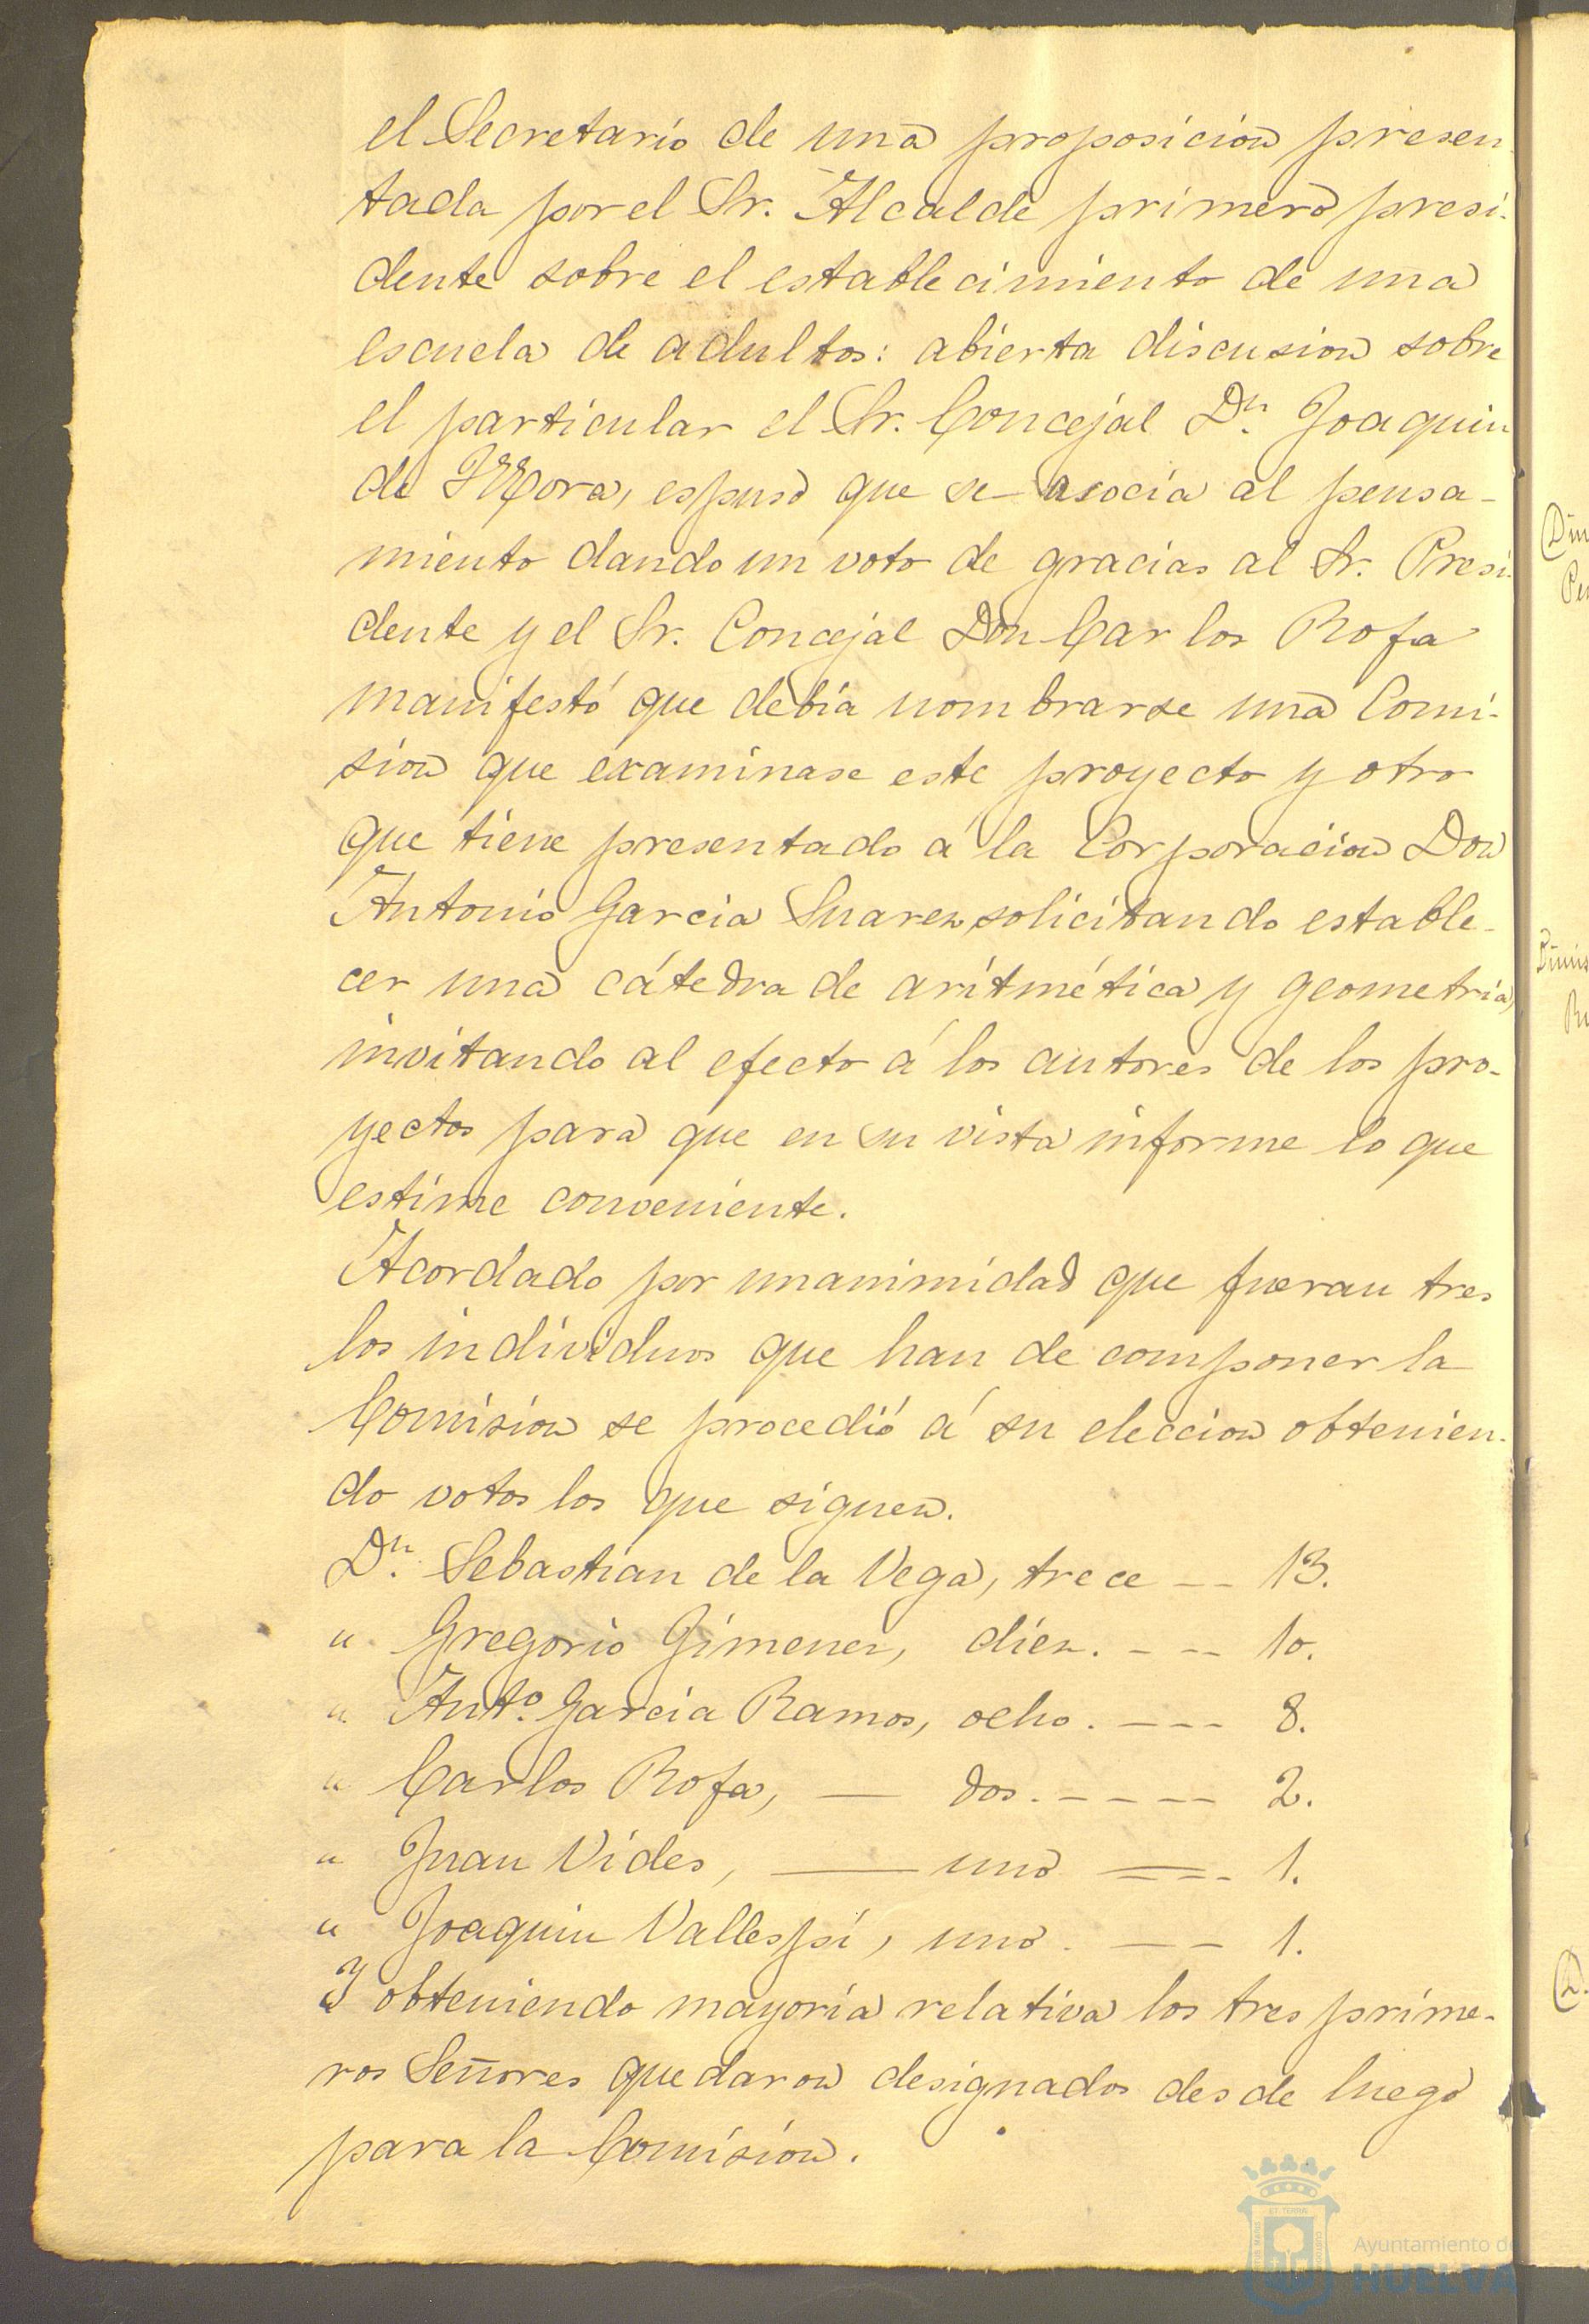 el Secretario de una proposicion presen
tada por el Sr. Alcalde primero presi-
dente sobre el establecimiento de una
escuela de adultos: abierta discusion sobre
el particular el Sr. Concejal Dn. Joaquin
de Mora, espuso que se asocia al pensa-
miento dando un voto de gracias al Sr. Presi-
dente y el Sr. Concejal Don Carlos Rofa
manifestó que debía nombrarse una Comi-
sion que examinase este proyecto y otro
que tiene presentado á la Corporacion Don
Antonio Garcia Suarez solicitando estable-
cer una cátedra de aritmética y geometria,
invitando al efecto á los autores de los pro-
yectos para que en su vista informe lo que
estime conveniente.
Acordado por unanimidad que fueran tres
los individuos que han de componer la
Comision se procedió á su eleccion obtenien-
do votos los que siguen.
Dn. Sebastian de la Vega, trece -- 13.
" Gregorio Gimenez, diez. --- 10.
" Anto. Garcia Ramos, ocho. --- 8.
" Carlos Rofa, — dos. ----- 2.
" Juan Vides, — uno --- 1.
" Joaquin Vallespí, uno. --- 1.
Y obteniendo mayoría relativa los tres prime-
ros Señores quedaron designados desde luego
para la Comisión.
Ayuntamiento de
HUELVA